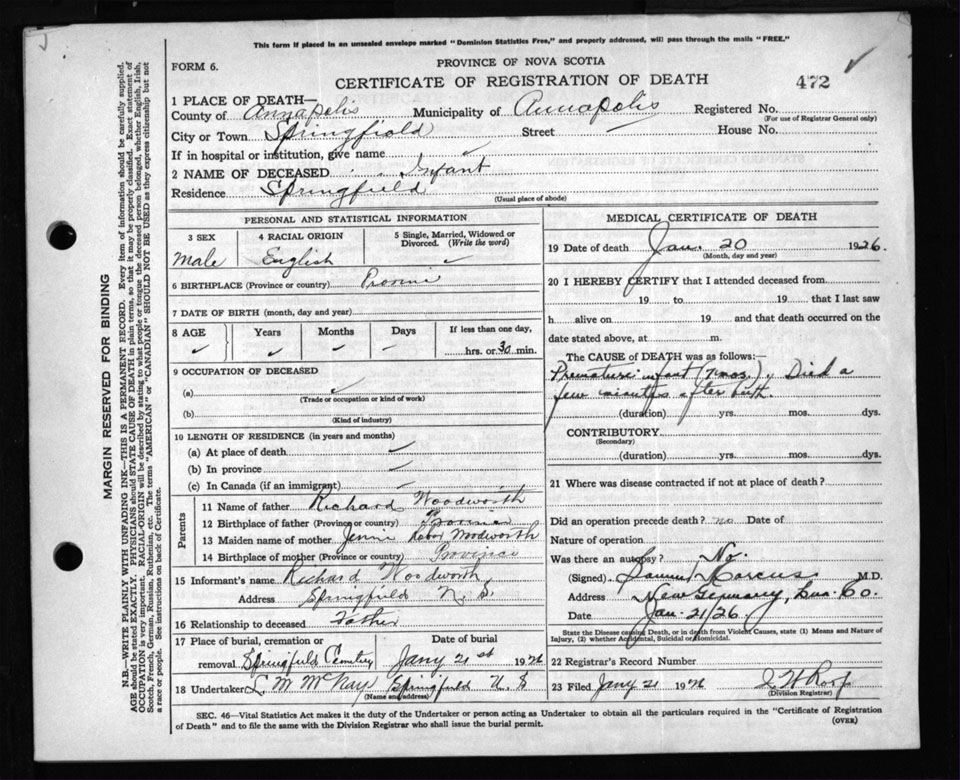 This form if placed in an unsealed envelope marked "Dominion Statistics Free," and properly addressed, will pass through the mails "FREE."
FORM 6.
PROVINCE OF NOVA SCOTIA
CERTIFICATE OF REGISTRATION OF DEATH
472
1 PLACE OF DEATH—
County of Annapolis Municipality of Annapolis Registered No.
(For use of Registrar General only)
City or Town Springfield Street — House No.
If in hospital or institution, give name
2 NAME OF DECEASED Infant
Residence Springfield
(Usual place of abode)
PERSONAL AND STATISTICAL INFORMATION
3 SEX 4 RACIAL ORIGIN 5 Single, Married, Widowed or Divorced. (Write the word)
Male English
6 BIRTHPLACE (Province or country)
7 DATE OF BIRTH (month, day and year)
8 AGE Years Months Days If less than one day,
hrs. or 30 min.
9 OCCUPATION OF DECEASED
(a)
(Trade or occupation or kind of work)
(b)
(Kind of industry)
10 LENGTH OF RESIDENCE (in years and months)
(a) At place of death
(b) In province
(c) In Canada (if an immigrant)
Parents
11 Name of father Richard Woodworth
12 Birthplace of father (Province or country)
13 Maiden name of mother Jennie
14 Birthplace of mother (Province or country)
15 Informant's name Richard Woodworth
Address Springfield N. S.
16 Relationship to deceased Father
17 Place of burial, cremation or removal Springfield Cemetry
Date of burial
Jany 21st 1926
18 Undertaker L. M. McNay Springfield N S
(Name and address)
MEDICAL CERTIFICATE OF DEATH
19 Date of death Jan. 20 1926.
(Month, day and year)
20 I HEREBY CERTIFY that I attended deceased from
19 to 19 that I last saw
h alive on 19 and that death occurred on the
date stated above, at m.
The CAUSE of DEATH was as follows:—
Premature infant (7 mos.). Died a
few minutes after birth.
(duration) yrs. mos. dys.
CONTRIBUTORY
(Secondary)
(duration) yrs. mos. dys.
21 Where was disease contracted if not at place of death?
Did an operation precede death? no Date of
Nature of operation
Was there an autopsy? No.
(Signed) Marcus M.D.
Address New Germany, Lun. Co.
Date Jan. 21/26.
State the Disease causing Death, or in death from Violent Causes, state (1) Means and Nature of
Injury, (2) whether Accidental, Suicidal or Homicidal.
22 Registrar's Record Number
23 Filed Jany 21 1926 Roop
(Division Registrar)
SEC. 46—Vital Statistics Act makes it the duty of the Undertaker or person acting as Undertaker to obtain all the particulars required in the "Certificate of Registration
of Death" and to file the same with the Division Registrar who shall issue the burial permit.
(OVER)
MARGIN RESERVED FOR BINDING
N.B.—WRITE PLAINLY WITH UNFADING INK—THIS IS A PERMANENT RECORD. Every item of information should be carefully supplied.
AGE should be stated EXACTLY. PHYSICIANS should STATE CAUSE OF DEATH in plain terms, so that it may be properly classified. Exact statement of
OCCUPATION is very important. RACIAL-ORIGIN will be described by stating to what people or tongue the deceased person belonged, whether English, Irish,
Scotch, French, German, Russian, Ruthenian, etc. The terms "AMERICAN" or "CANADIAN" SHOULD NOT BE USED as they express citizenship but not
a race or people. See instructions on back of Certificate.